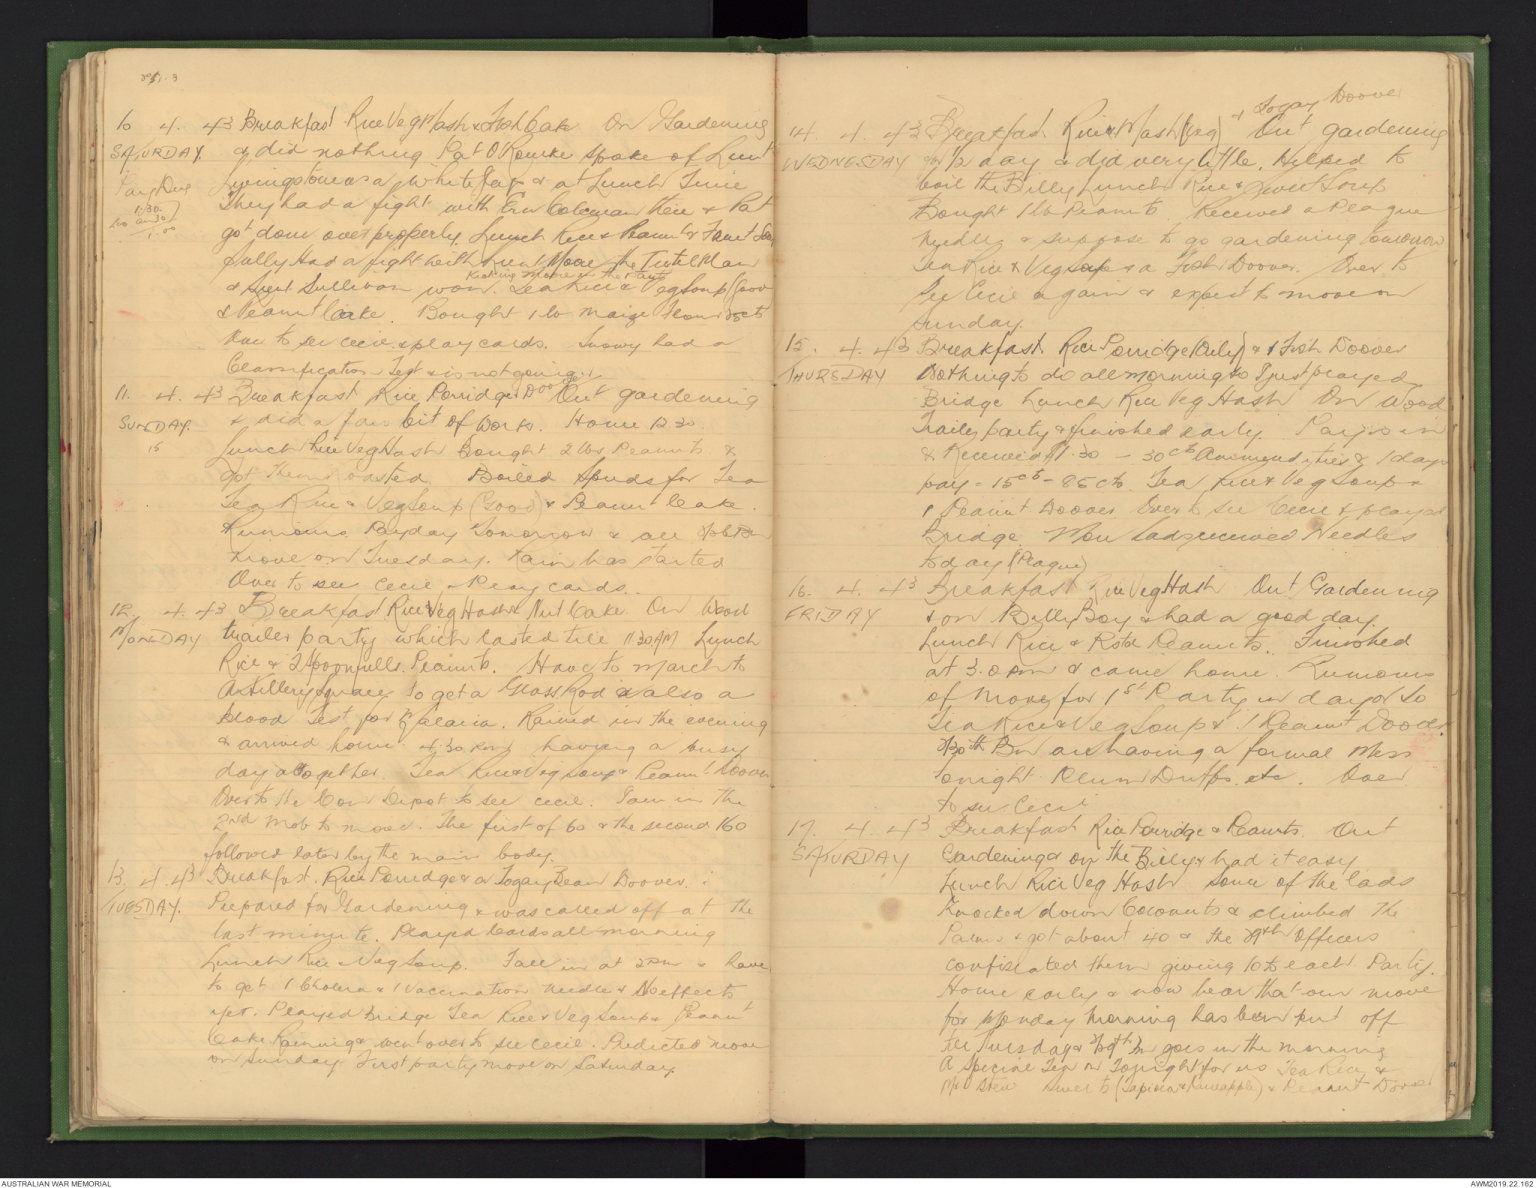 10 4. 43 Breakfast Rice Veg Hash & Fish Cake On Gardening
SATURDAY. & did nothing Pat O'Rourke spoke of Lieut
Livingstone as a White & at Lunch Time
1.30
They had a fight with Coleman there & Pat
1.00
got done over properly. Lunch Rice & Peanut &
had a fight with Moore the
Kicking Moore in the
& Sgnt Sullivan won. Tea Rice & Veg Soup (Good)
& Peanut Cake. Bought 1 lb Maize Flour 25cts
Over to see Cecil & play cards. Snowy had a
Classification Test & is not going.
11. 4. 43 Breakfast Rice Porridge & Doover Out gardening
SUNDAY. & did a fair bit of work. Home 12.30
15
Lunch Rice Veg Hash Bought 2 lbs Peanuts &
got them roasted. Boiled Spuds for Tea
Tea Rice & Veg Soup (Good) & Peanut Cake.
Rumours Payday tomorrow & all
move on Tuesday. Rain has started
Over to see Cecil & Play cards.
12. 4. 43 Breakfast Rice & Veg Hash & Nut Cake. On Wood
MONDAY trailer party which lasted till 11.30AM Lunch
Rice & 2 Spoonfulls Peanuts. Have to march to
Artillery Square to get a Glass Rod & also a
blood Test for Malaria. Rained in the evening
& arrived home 4.30 having a busy
day altogether. Tea Rice & Veg Soup & Peanut Doover
Over to the Con Depot to see Cecil. I am in the
2nd Mob to move. The first of 60 & the second 160
followed later by the main body.
13. 4. 43 Breakfast. Rice Porridge & a Togay Bean Doover.
TUESDAY. Prepared for Gardening & was called off at the
last minute. Played Cards all morning
Lunch Rice & Veg Soup. Fall in at 2pm & have
to get 1 Cholera & 1 Vaccination needle & No effects
yet. Played Bridge Tea Rice & Veg Soup & Peanut
Cake Raining & went over to see Cecil. Predicted move
on Sunday First party move on Saturday
& Togay Doover
14. 4. 43 Breakfast Rice & Hash (Veg) Out gardening
WEDNESDAY for 1/2 day & did very little. Helped to
boil the Billy Lunch Rice & Sweet Soup
Bought 1 lb Peanuts. Received a Plague
Needle & suppose to go gardening tomorrow
Tea Rice & Veg Soup & a Fish Doover. Over to
See Cecil again & expect to move on
Sunday.
15. 4. 43 Breakfast Rice Porridge (Oily) & 1 Fish Doover
THURSDAY Nothing to do all morning so just played
Bridge Lunch Rice Veg Hash On Wood
Trailer party & finished early. Pay is in
& Received 1.30 – 30cts Amenities & 1 days
pay – 15cts – 85cts. Tea Rice & Veg Soup &
1 Peanut Doover Over to see Cecil & played
Bridge. Mou lads received Needles
today (Plague)
16. 4. 43 Breakfast Rice Veg Hash Out Gardening
FRIDAY & on Billy Boy & had a good day.
Lunch Rice & Rstd Peanuts. Finished
at 3.0 pm & came home. Rumours
of move for 1st Party in day or so
Tea Rice & Veg Soup & 1 Peanut Doover.
2/30th Bn are having a formal Mess
tonight. Plum Duffs etc. Over
to see Cecil
17. 4. 43 Breakfast Rice Porridge & Peanuts. Out
SATURDAY Gardening & on the Billy & had it easy
Lunch Rice Veg Hash some of the lads
knocked down Coconuts & climbed the
Palms & got about 40 & the 29th Officers
confiscated them giving 10 to each Party.
Home early & now hear that our move
for Monday Morning has been put off
till Tuesday & goes in the morning
A Special Tea on Tonight for us Tea Rice &
Stew Sweet to (Tapioca & Pineapple) & Peanut Doover
AUSTRALIAN WAR MEMORIAL
AWM2019.22.162